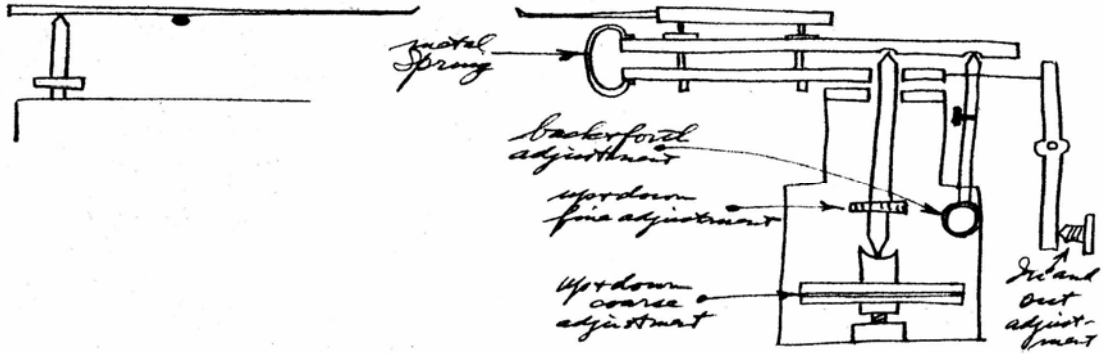 metal
Spring
back+forth
adjustment
up+down
fine adjustment
up+down
coarse
adjustment
In and
out
adjust-
ment